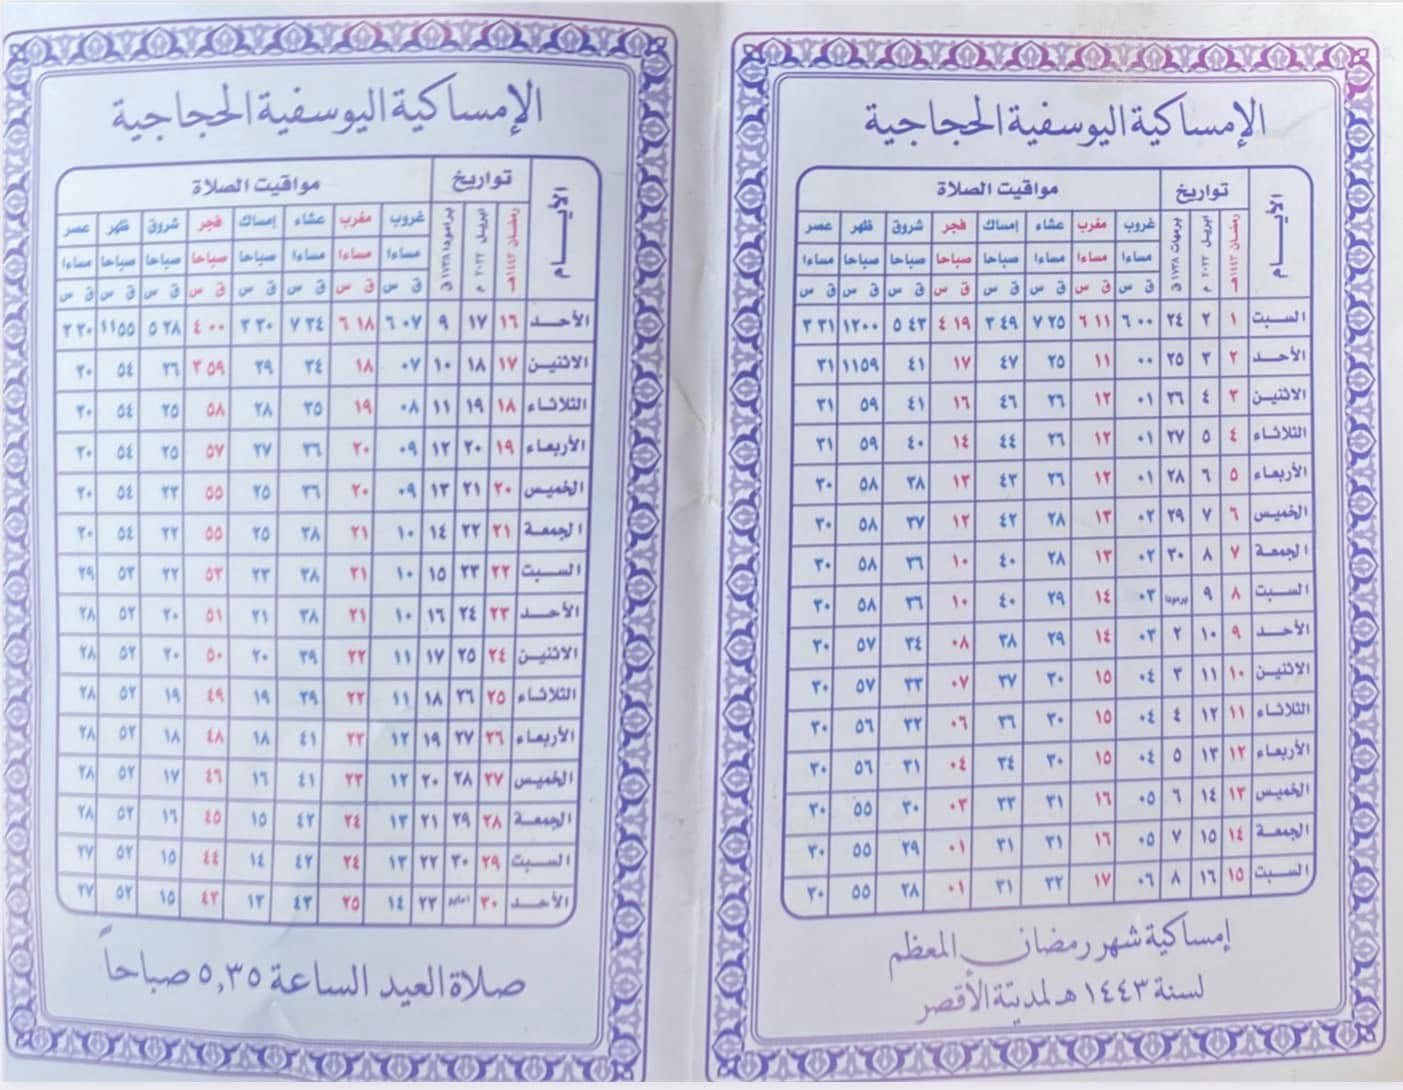 الإمساكية اليوسفية الحجاجية
الأيـــام تواريخ مواقيت الصلاة
رمضان ١٤٤٣هـ ابريل ٢٠٢٢ م برمهات ١٧٣٨ ق غروب مغرب عشاء إمساك فجر شروق ظهر عصر
مساءا مساءا مساءا صباحا صباحا صباحا صباحا مساءا
ق س ق س ق س ق س ق س ق س ق س ق س
السبت ١ ٢ ٢٤ ٠٠ ٦ ١١ ٦ ٢٥ ٧ ٤٩ ٣ ١٩ ٤ ٤٣ ٥ ٠٠ ١٢ ٣١ ٣
الأحد ٢ ٣ ٢٥ ٠٠ ١١ ٢٥ ٤٧ ١٧ ٤١ ٥٩ ١١ ٣١
الاثنين ٣ ٤ ٢٦ ٠١ ١٢ ٢٦ ٤٦ ١٦ ٤١ ٥٩ ٣١
الثلاثاء ٤ ٥ ٢٧ ٠١ ١٢ ٢٦ ٤٤ ١٤ ٤٠ ٥٩ ٣١
الأربعاء ٥ ٦ ٢٨ ٠١ ١٢ ٢٦ ٤٣ ١٣ ٣٨ ٥٨ ٣٠
الخميس ٦ ٧ ٢٩ ٠٢ ١٣ ٢٨ ٤٢ ١٢ ٣٧ ٥٨ ٣٠
الجمعة ٧ ٨ ٣٠ ٠٢ ١٣ ٢٨ ٤٠ ١٠ ٣٦ ٥٨ ٣٠
السبت ٨ ٩ برمودا ٠٣ ١٤ ٢٩ ٤٠ ١٠ ٣٦ ٥٨ ٣٠
الأحد ٩ ١٠ ٢ ٠٣ ١٤ ٢٩ ٣٨ ٠٨ ٣٤ ٥٧ ٣٠
الاثنين ١٠ ١١ ٣ ٠٤ ١٥ ٣٠ ٣٧ ٠٧ ٣٣ ٥٧ ٣٠
الثلاثاء ١١ ١٢ ٤ ٠٤ ١٥ ٣٠ ٣٦ ٠٦ ٣٢ ٥٦ ٣٠
الأربعاء ١٢ ١٣ ٥ ٠٤ ١٥ ٣٠ ٣٤ ٠٤ ٣١ ٥٦ ٣٠
الخميس ١٣ ١٤ ٦ ٠٥ ١٦ ٣١ ٣٣ ٠٣ ٣٠ ٥٥ ٣٠
الجمعة ١٤ ١٥ ٧ ٠٥ ١٦ ٣١ ٣١ ٠١ ٢٩ ٥٥ ٣٠
السبت ١٥ ١٦ ٨ ٠٦ ١٧ ٣٢ ٣١ ٠١ ٢٨ ٥٥ ٣٠
إمساكية شهر رمضان المعظم
لسنة ١٤٤٣ هـ لمدينة الأقصر
الإمساكية اليوسفية الحجاجية
الأيـــام تواريخ مواقيت الصلاة
رمضان ١٤٤٣هـ ابريل ٢٠٢٢ م برامودا ١٧٣٨ ق غروب مغرب عشاء إمساك فجر شروق ظهر عصر
مساءا مساءا مساءا صباحا صباحا صباحا صباحا مساءا
ق س ق س ق س ق س ق س ق س ق س ق س
الأحد ١٦ ١٧ ٩ ٠٧ ٦ ١٨ ٦ ٣٤ ٧ ٣٠ ٣ ٠٠ ٤ ٢٨ ٥ ٥٥ ١١ ٣٠ ٣
الاثنين ١٧ ١٨ ١٠ ٠٧ ١٨ ٣٤ ٢٩ ٥٩ ٣ ٢٦ ٥٤ ٣٠
الثلاثاء ١٨ ١٩ ١١ ٠٨ ١٩ ٣٥ ٢٨ ٥٨ ٢٥ ٥٤ ٣٠
الأربعاء ١٩ ٢٠ ١٢ ٠٩ ٢٠ ٣٦ ٢٧ ٥٧ ٢٥ ٥٤ ٣٠
الخميس ٢٠ ٢١ ١٣ ٠٩ ٢٠ ٣٦ ٢٥ ٥٥ ٢٣ ٥٤ ٣٠
الجمعة ٢١ ٢٢ ١٤ ١٠ ٢١ ٣٨ ٢٥ ٥٥ ٢٢ ٥٤ ٣٠
السبت ٢٢ ٢٣ ١٥ ١٠ ٢١ ٣٨ ٢٣ ٥٣ ٢٢ ٥٣ ٢٩
الأحد ٢٣ ٢٤ ١٦ ١٠ ٢١ ٣٨ ٢١ ٥١ ٢٠ ٥٢ ٢٨
الاثنين ٢٤ ٢٥ ١٧ ١١ ٢٢ ٣٩ ٢٠ ٥٠ ٢٠ ٥٢ ٢٨
الثلاثاء ٢٥ ٢٦ ١٨ ١١ ٢٢ ٣٩ ١٩ ٤٩ ١٩ ٥٢ ٢٨
الأربعاء ٢٦ ٢٧ ١٩ ١٢ ٢٣ ٤١ ١٨ ٤٨ ١٨ ٥٢ ٢٨
الخميس ٢٧ ٢٨ ٢٠ ١٢ ٢٣ ٤١ ١٦ ٤٦ ١٧ ٥٢ ٢٨
الجمعة ٢٨ ٢٩ ٢١ ١٣ ٢٤ ٤٢ ١٥ ٤٥ ١٦ ٥٢ ٢٨
السبت ٢٩ ٣٠ ٢٢ ١٣ ٢٤ ٤٢ ١٤ ٤٤ ١٥ ٥٢ ٢٧
الأحد ٣٠ ١مايو ٢٣ ١٤ ٢٥ ٤٣ ١٣ ٤٣ ١٥ ٥٢ ٢٧
صلاة العيد الساعة ٥,٣٥ صباحاً